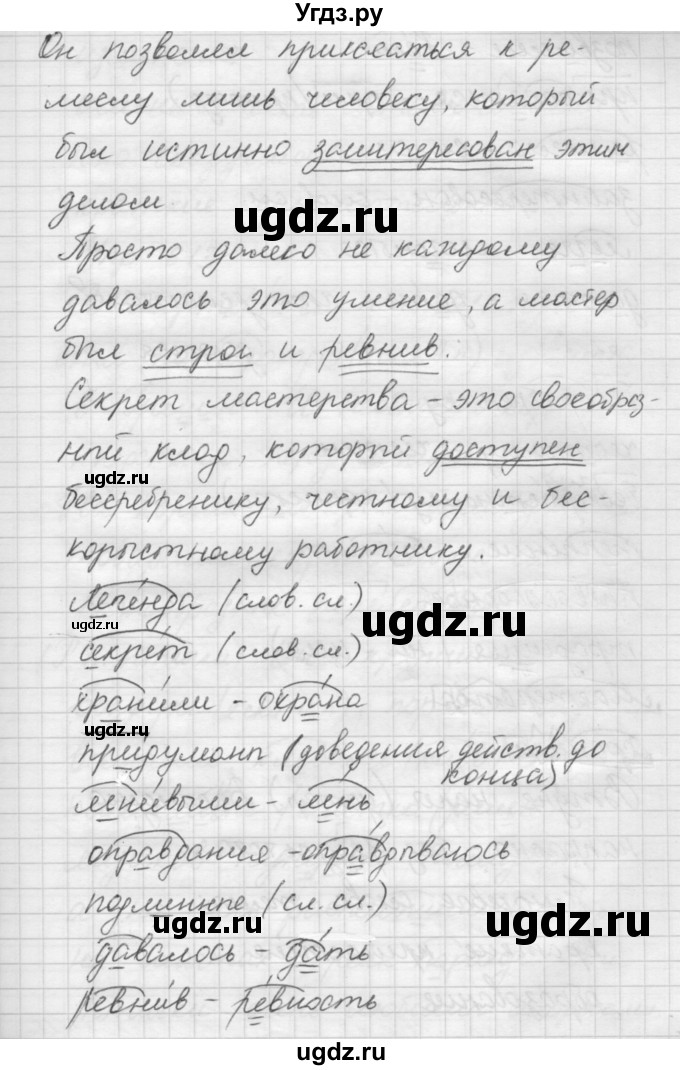 Угдз.ру
Он позволял прикасаться к ре-
меслу лишь человеку, который
был истинно заинтересован этим
делом
ugdz.ru
Просто далеко не каждому
давалось это умение, а мастер
был строг и ревнив.
Секрет мастерства – это своеобраз-
ugdz.ru
ный клад, который доступен
бессребренику, честному и бес-
корыстному работнику.
Легенда (слов. сл.)
ugdz.ru
ugdz.ru
секрет (слов. сл.)
хранили – охрана
ugdz.ru
придуманы (доведения действ. до
конца)
ленивыми – лень
оправдания – оправдываюсь
подлинные (сл. сл.)
ugdz.ru
ugdz.ru
давалось – дать
ревнив – ревность
ugdz.ru